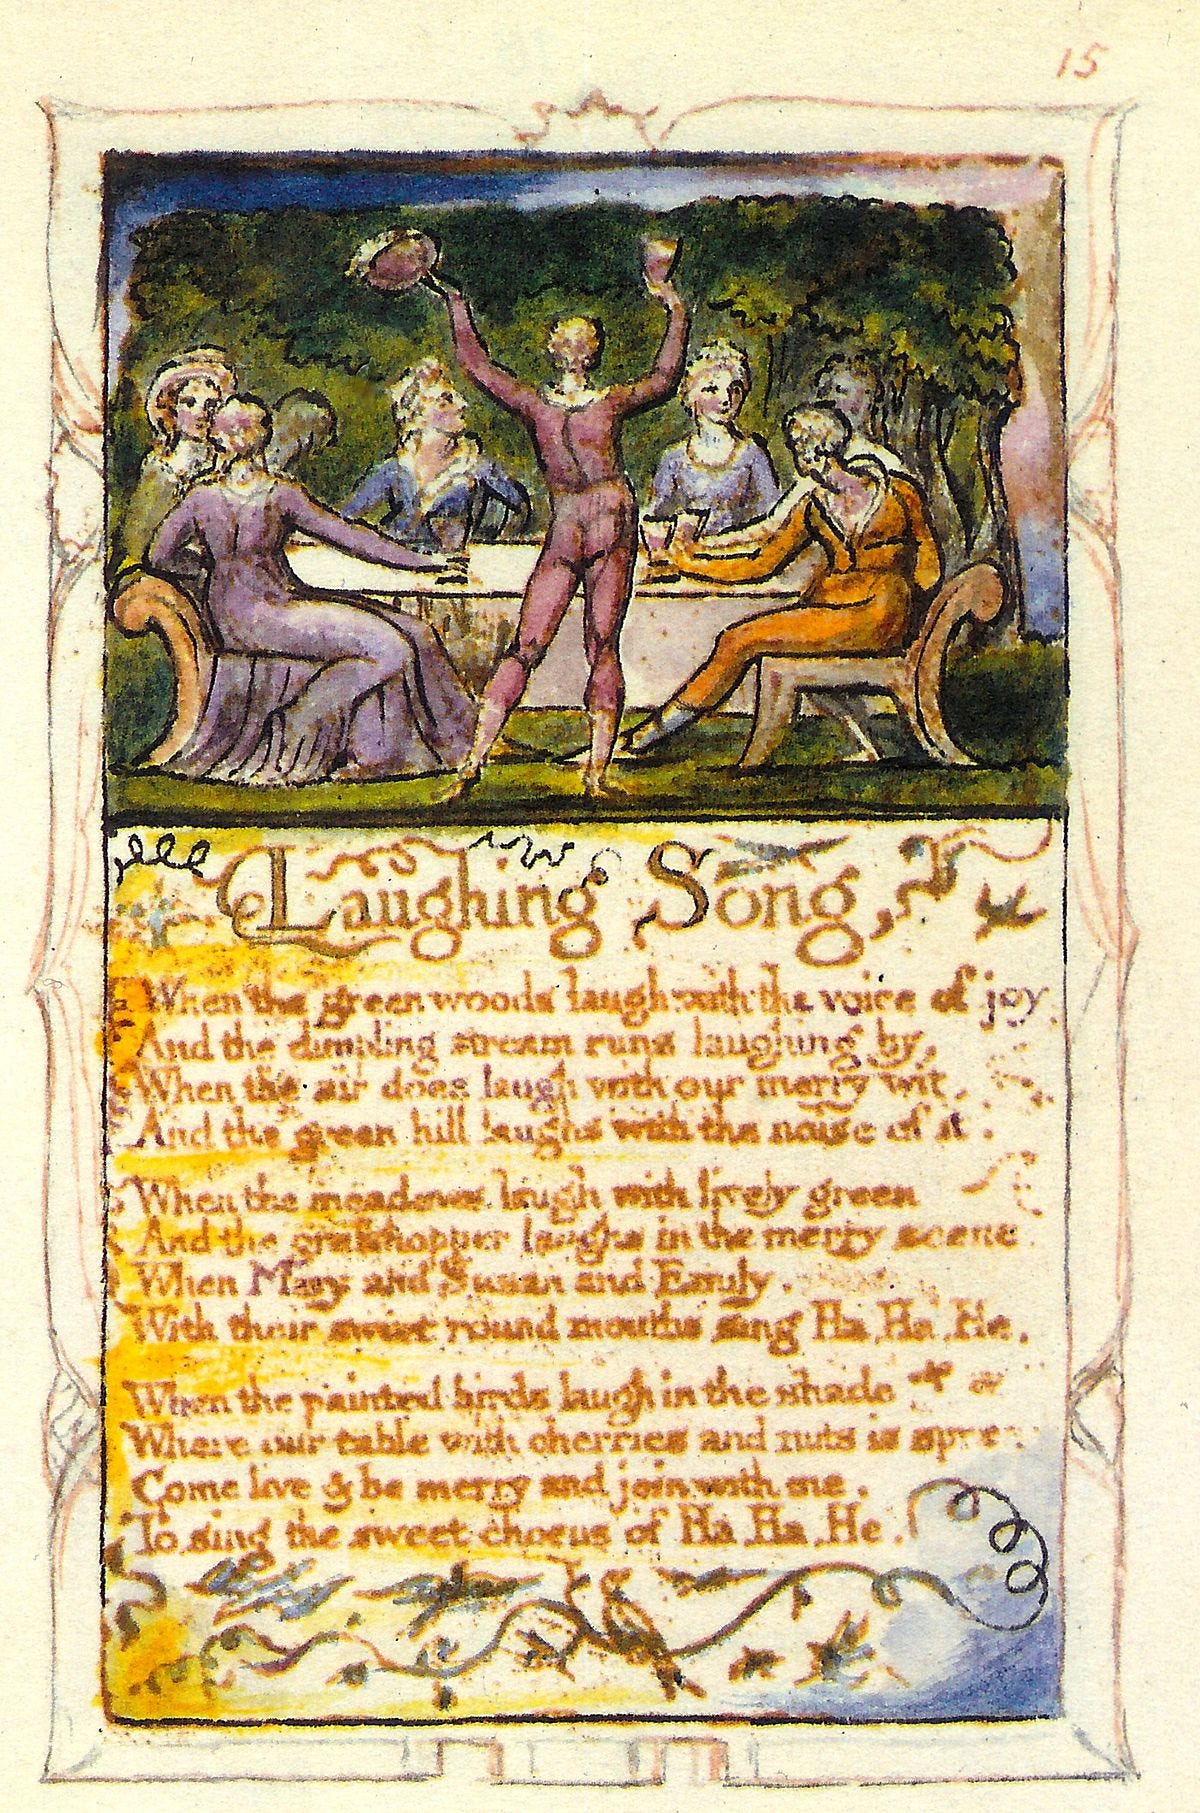 15
Laughing Song,
When the green woods laugh with the voice of joy
And the dimpling stream runs laughing by,
When the air does laugh with our merry wit.
And the green hill laughs with the noise of it.
When the meadows laugh with lively green
And the grasshopper laughs in the merry scene
When Mary and Susan and Emily.
With their sweet round mouths sing Ha, Ha, He.
When the painted birds laugh in the shade
Where our table with cherries and nuts is spread
Come live & be merry and join with me.
To sing the sweet chorus of Ha, Ha, He.